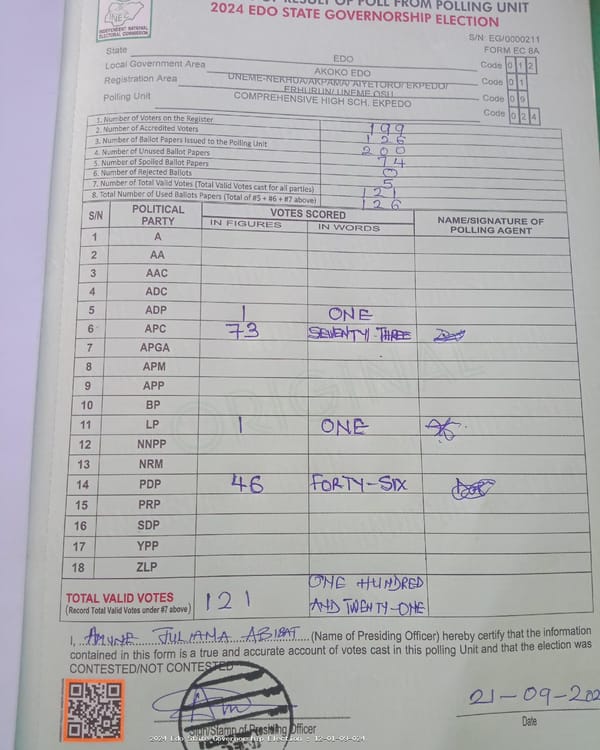 OF RESULT OF POLL FROM POLLING UNIT
2024 EDO STATE GOVERNORSHIP ELECTION
INEC
INDEPENDENT NATIONAL ELECTORAL COMMISSION
S/N: EG/0000211
FORM EC 8A
State EDO
Local Government Area AKOKO EDO Code 0 1 2
Registration Area UNEME-NEKHUA/AKPAMA/AIYETORO/EKPEDO/ERHURUN/UNEME OSU Code 0 1
Polling Unit COMPREHENSIVE HIGH SCH. EKPEDO Code 0 9
Code 0 2 4
1. Number of Voters on the Register 199
2. Number of Accredited Voters 126
3. Number of Ballot Papers Issued to the Polling Unit 200
4. Number of Unused Ballot Papers 74
5. Number of Spoiled Ballot Papers 0
6. Number of Rejected Ballots 5
7. Number of Total Valid Votes (Total Valid Votes cast for all parties) 121
8. Total Number of Used Ballots Papers (Total of #5 + #6 + #7 above) 126
S/N POLITICAL PARTY VOTES SCORED NAME/SIGNATURE OF POLLING AGENT
IN FIGURES IN WORDS
1 A
2 AA
3 AAC
4 ADC
5 ADP 1 ONE
6 APC 73 SEVENTY-THREE
7 APGA
8 APM
9 APP
10 BP
11 LP 1 ONE
12 NNPP
13 NRM
14 PDP 46 FORTY-SIX
15 PRP
16 SDP
17 YPP
18 ZLP
ORIGINAL
TOTAL VALID VOTES 121 ONE HUNDRED
(Record Total Valid Votes under #7 above) AND TWENTY-ONE
I, AMUNE JULIANA ABIBAT (Name of Presiding Officer) hereby certify that the information
contained in this form is a true and accurate account of votes cast in this polling Unit and that the election was
CONTESTED/NOT CONTESTED
21-09-202
Sign/Stamp of Presiding Officer
Date